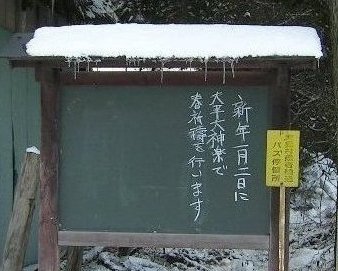 新年一月二日に
太平大神楽で
春祈祷を行います
バス停留所